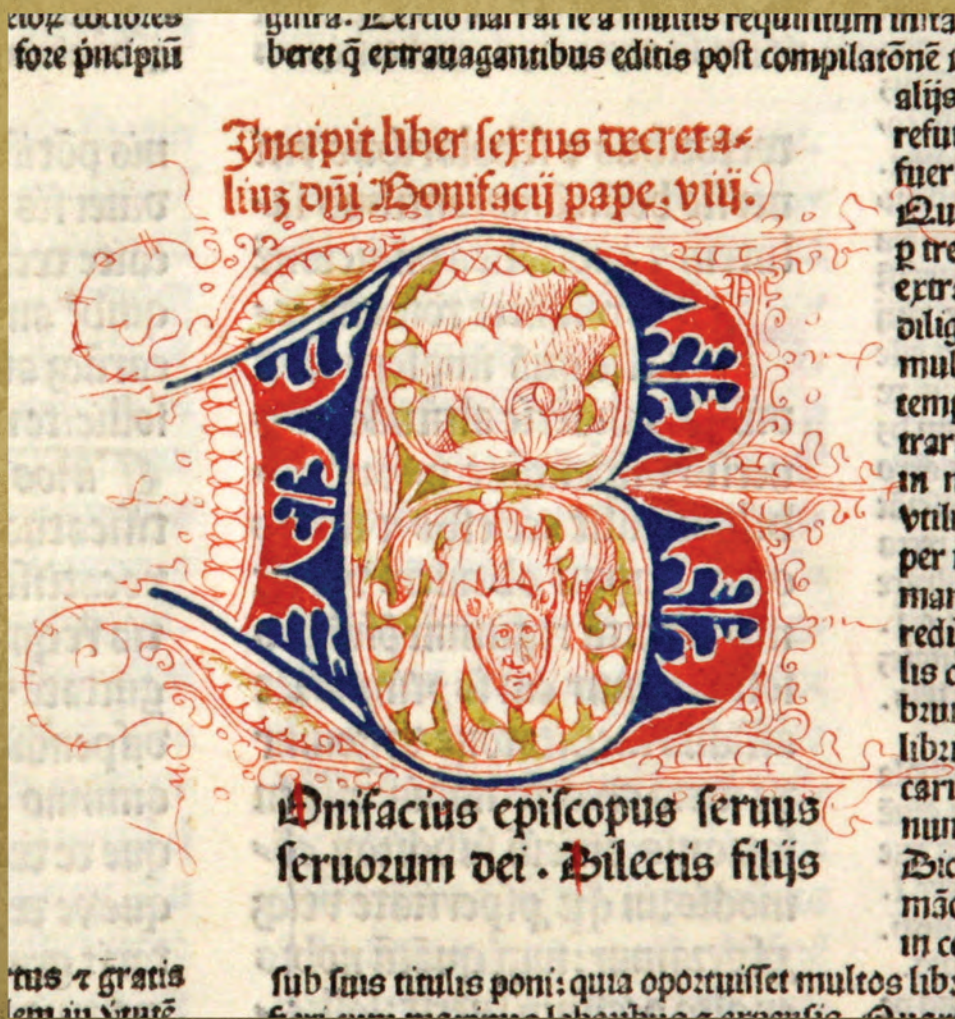 fore p̱ncipiū
beret q̄ extrauagantibus editis post compilatōnē
Incipit liber sextus decreta⸗
liuꝫ dn̄i Bonifacij pape. viij.
B
Onifacius episcopus seruus
seruorum dei . Dilectis filijs
alijs
refu
fuer
Qu
ꝑ tre
extra
dilig
mul
temp
trar
in n
vtili
per
man
redi
lis c
brun
libr
cari
num
Dic
mād
in co
tus ⁊ gratis
sub suis titulis poni: quia oportuisset multos libr